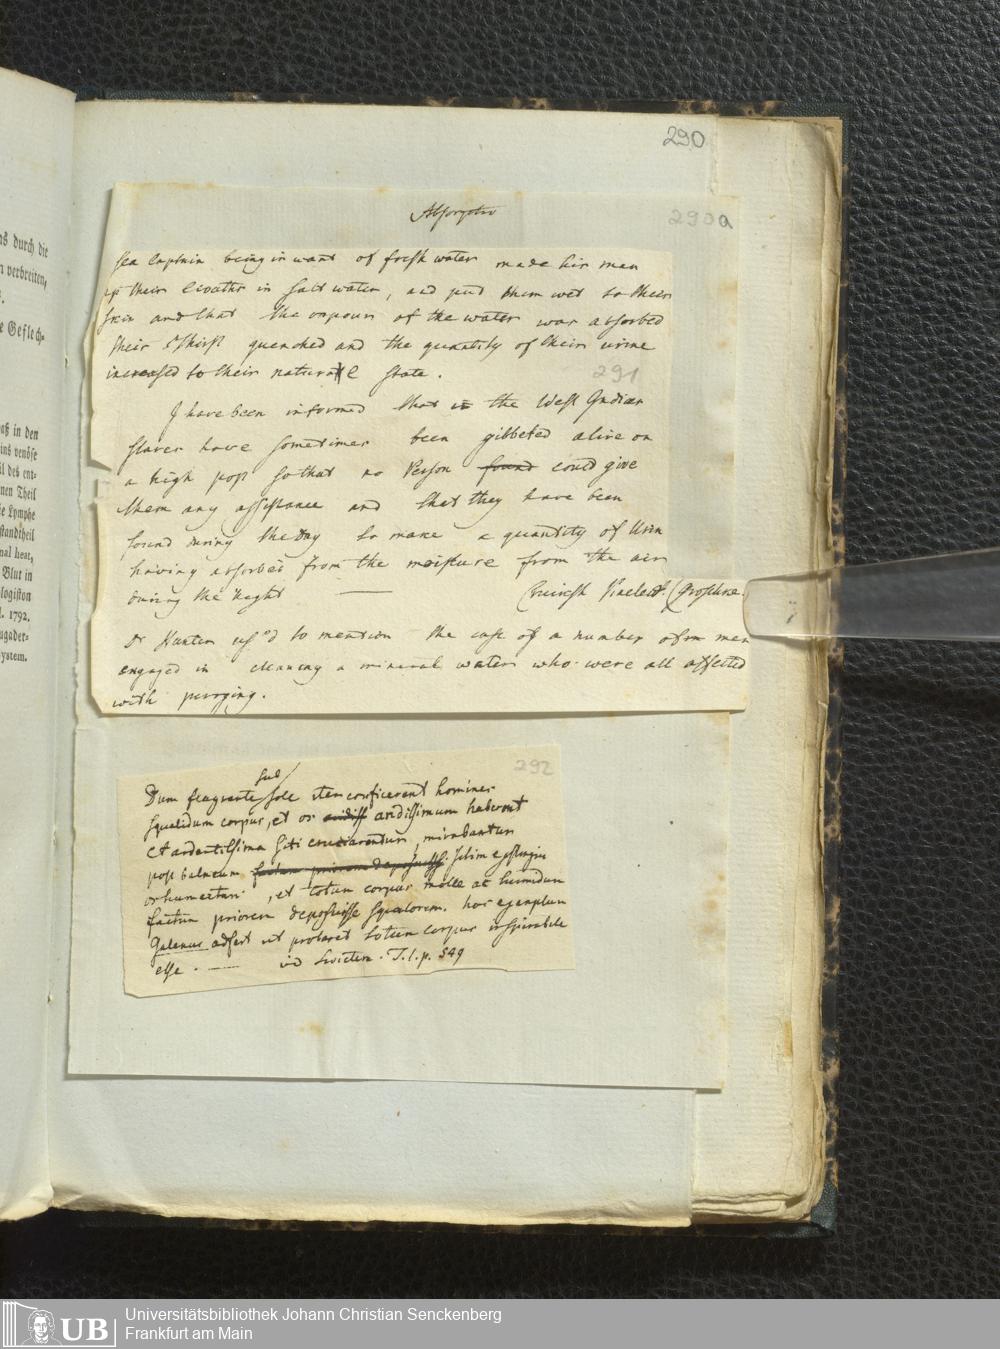 290
290a
Absorptio
Sea Captain being in want of fresh water made his men
their cloaths in salt water, and put them wet to their
skin and that the vapour of the water was absorbed
their Thirst quenched and the quantity of their urine
increased to their natural state.
291
I have been informed that in the West Indies
slaves have sometimes been gibbeted alive on
a high post so that no Person found could give
them any assistance and that they have been
found during the Day to make a quantity of Urin
having absorbed from the moisture from the air
during the Night —
Dr Hunter us'd to mention the case of a number of men
engaged in cleaning a mineral water who were all affected
with purging.
292
sub
Dum flagrante sole iter conficerent homines
squalidum corpus, et os aridissimum haberent
et ardentissima siti cruciarentur, mirabantur
post balneum factum priorem deposuisse sitim extingui
os humectari, et totum corpus molle ac humidum
factum priorem deposuisse squalorem. hoc exemplum
Galenus adfert ut probaret totum corpus inspirabile
esse. — vid Swieten. T. I. p. 549
as durch die
n verbreiten,
e Geflech-
aß in den
ins venöse
il des ent-
nen Theil
ie Lymphe
standtheil
nal heat,
Blut in
logiston
l. 1792.
ugader-
ystem.
UB
Universitätsbibliothek Johann Christian Senckenberg
Frankfurt am Main